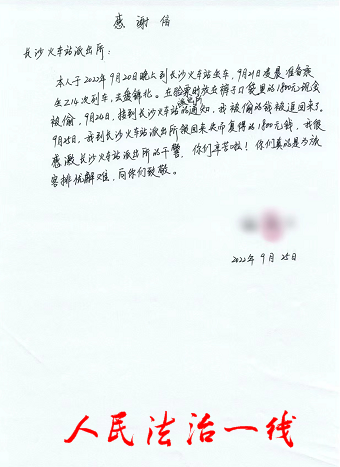 感谢信
长沙火车站派出所：
本人于2022年9月20日晚上到长沙火车站坐车，9月21日凌晨准备乘
坐Z14次列车，去盘锦北。在验票时放在裤子口袋里的1800元现金
被偷，9月24日，接到长沙火车站派出所的通知，我被偷的钱被追回来了。
9月25日，我到长沙火车站派出所领回失而复得的1800元钱，我很
感激长沙火车站派出所的干警，你们辛苦啦！你们真的是为旅
客排忧解难，向你们致敬。
2022年9月25日
人民法治一线